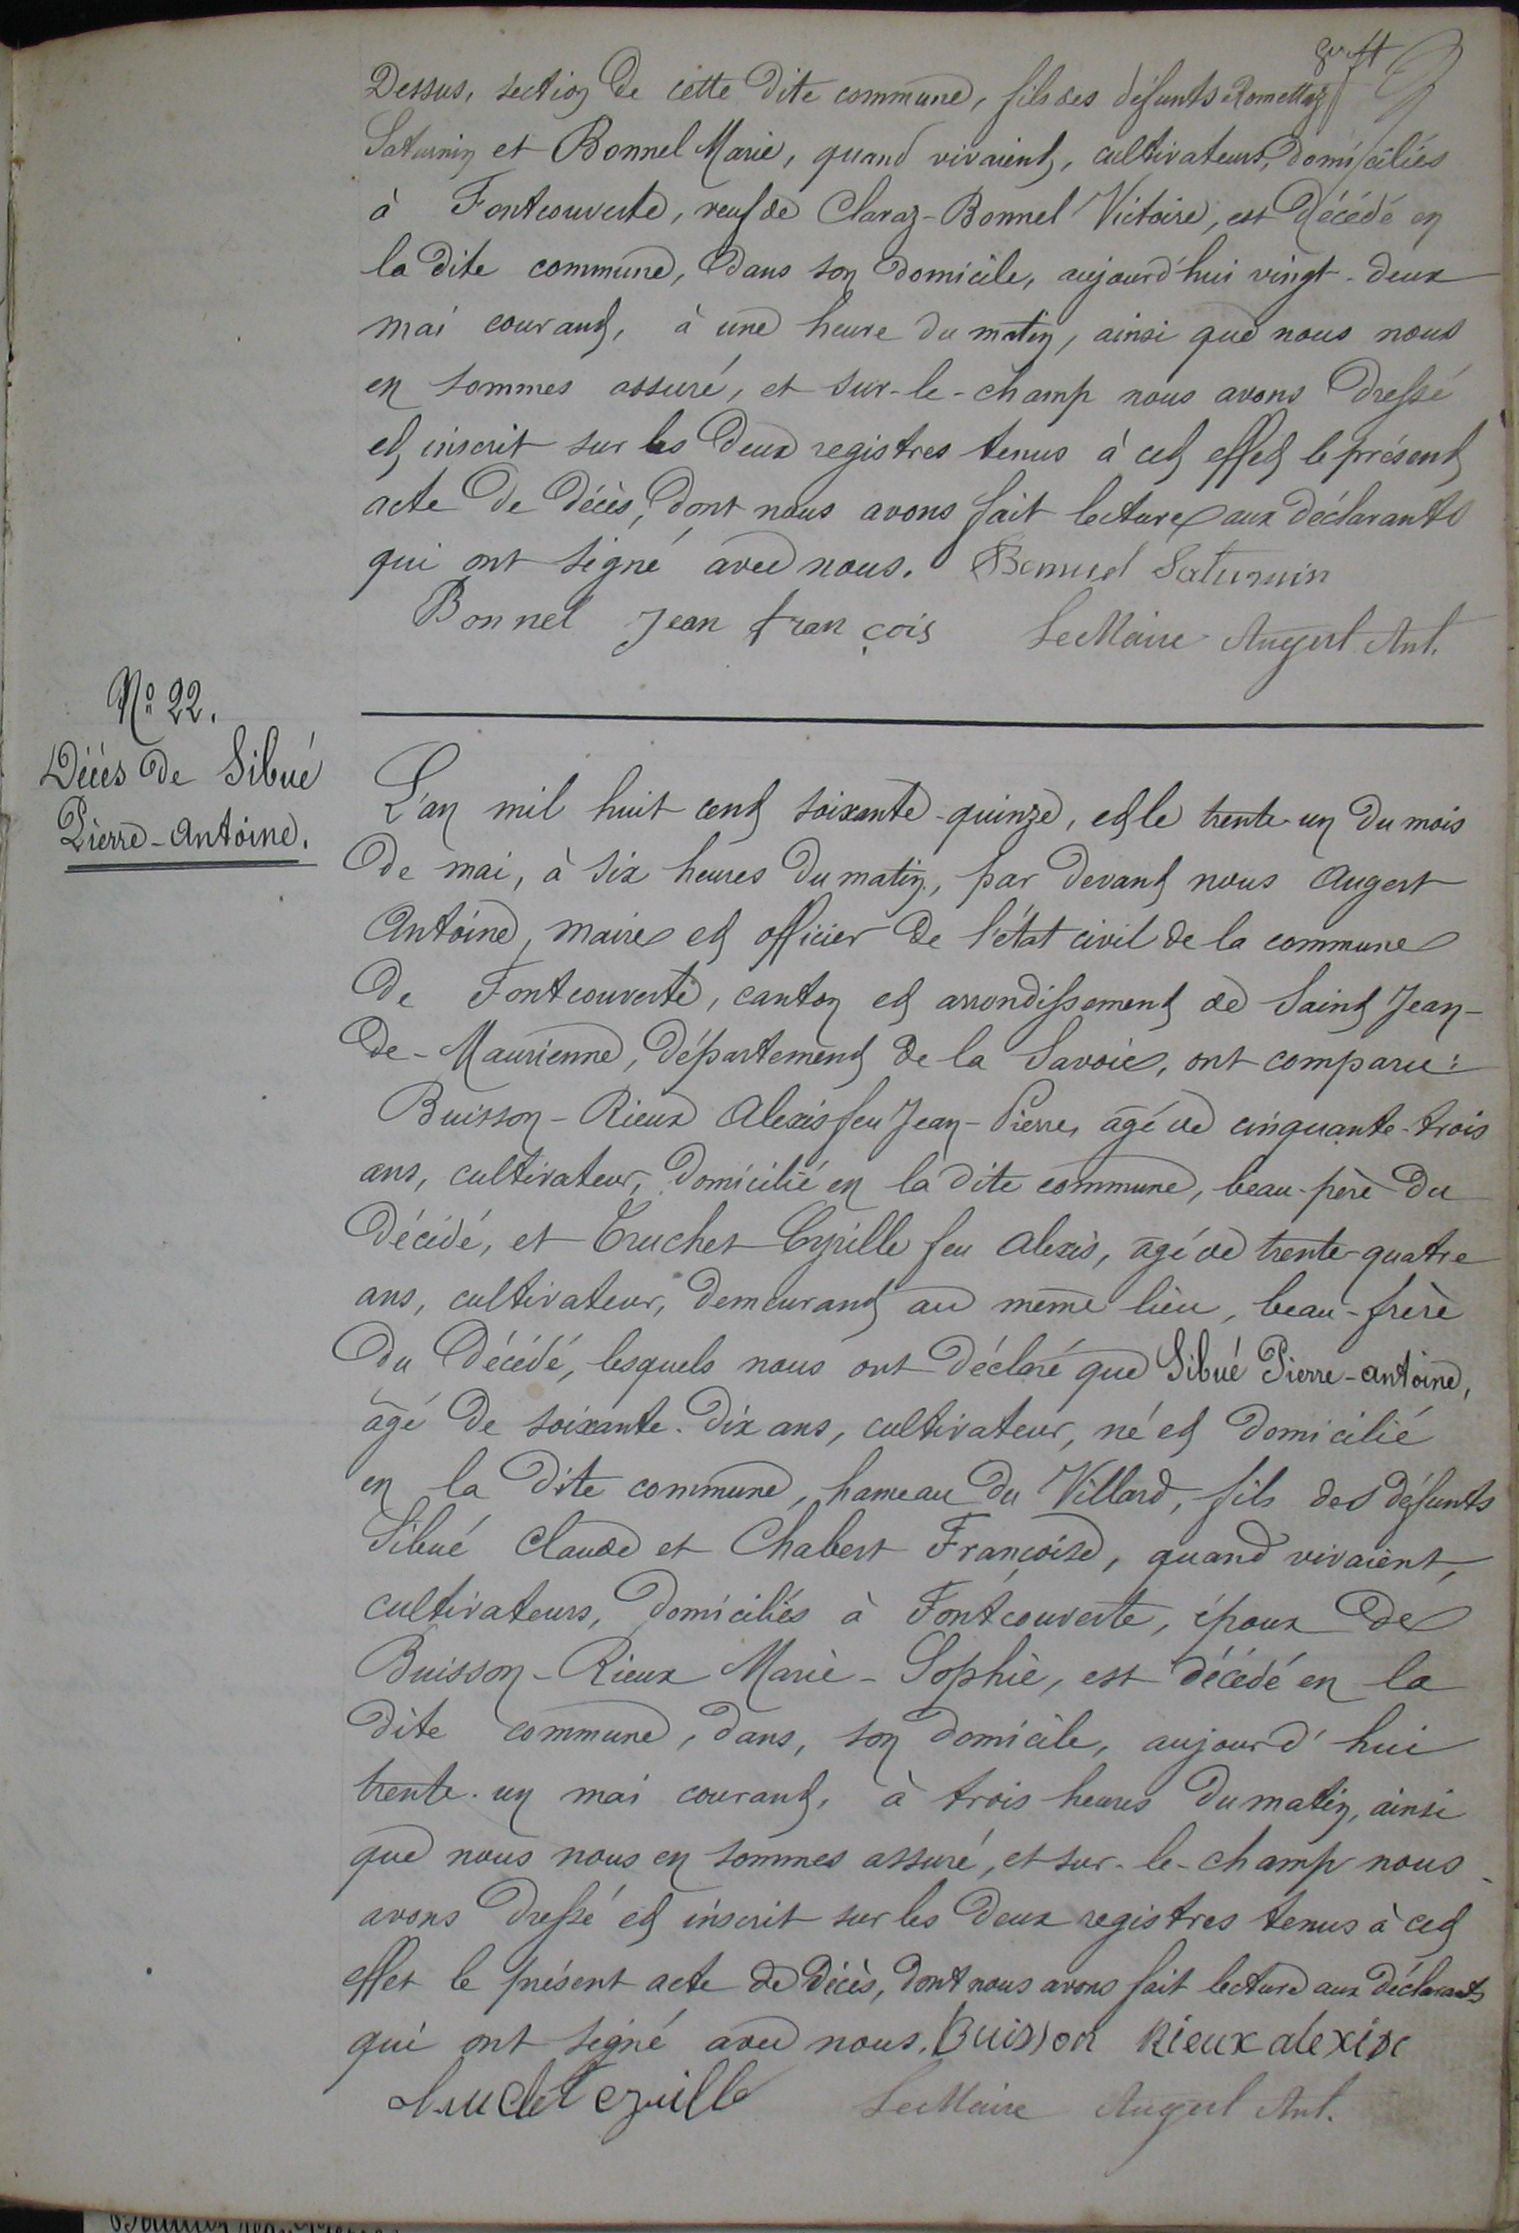 Dessus, section de cette dite commune, fils des défunts Romettaz
Saturnin et Bonnel Marie, quand vivaient, cultivateurs, domiciliés
à Fontcouverte, veuf de Claraz-Bonnel Victoire, est décédé en
la dite commune, dans son domicile, aujourd'hui vingt-deux
mai courant, à une heure du matin, ainsi que nous nous
en sommes assuré, et sur-le-champ nous avons dressé
et inscrit sur les deux registres tenus à cet effet le présent
acte de décès, dont nous avons fait lecture aux déclarants
qui ont signé avec nous. Bonnel Saturnin
Bonnel Jean françois Le Maire Augert Ant.
N° 22.
Décès de Sibué
Pierre-Antoine.
L'an mil huit cent soixante-quinze, et le trente-un du mois
de mai, à six heures du matin, par devant nous Augert
Antoine, maire et officier de l'état civil de la commune
de Fontcouverte, canton et arrondissement de Saint Jean-
de-Maurienne, département de la Savoie, ont comparu:
Buisson-Rieux Alexis feu Jean-Pierre, âgé de cinquante-trois
ans, cultivateur, domicilié en la dite commune, beau-père du
décédé, et Truchet Cyrille feu Alexis, âgé de trente-quatre
ans, cultivateur, demeurant au même lieu, beau-frère
du décédé, lesquels nous ont déclaré que Sibué Pierre-Antoine,
âgé de soixante-dix ans, cultivateur, né et domicilié
en la dite commune, hameau du Villard, fils des défunts
Sibué Claude et Chabert Françoise, quand vivaient,
cultivateurs, domiciliés à Fontcouverte, époux de
Buisson-Rieux Marie-Sophie, est décédé en la
dite commune, dans, son domicile, aujourd'hui
trente-un mai courant, à trois heures du matin, ainsi
que nous nous en sommes assuré, et sur-le-champ nous
avons dressé et inscrit sur les deux registres tenus à cet
effet le présent acte de décès, dont nous avons fait lecture aux déclarants
qui ont signé avec nous. Buisson Rieux alexis
truchet cyrille Le Maire Augert Ant.